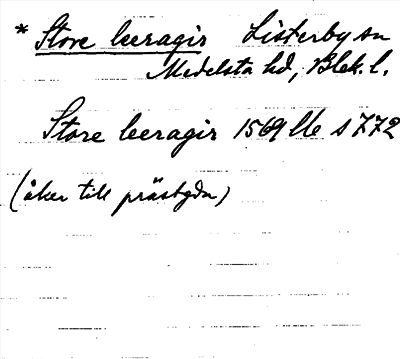 * Store leeragir Listerby sn
Medelsta hd, Blek. l.
Store leeragir 1569 Lle s 772
(åker till prästgdn)